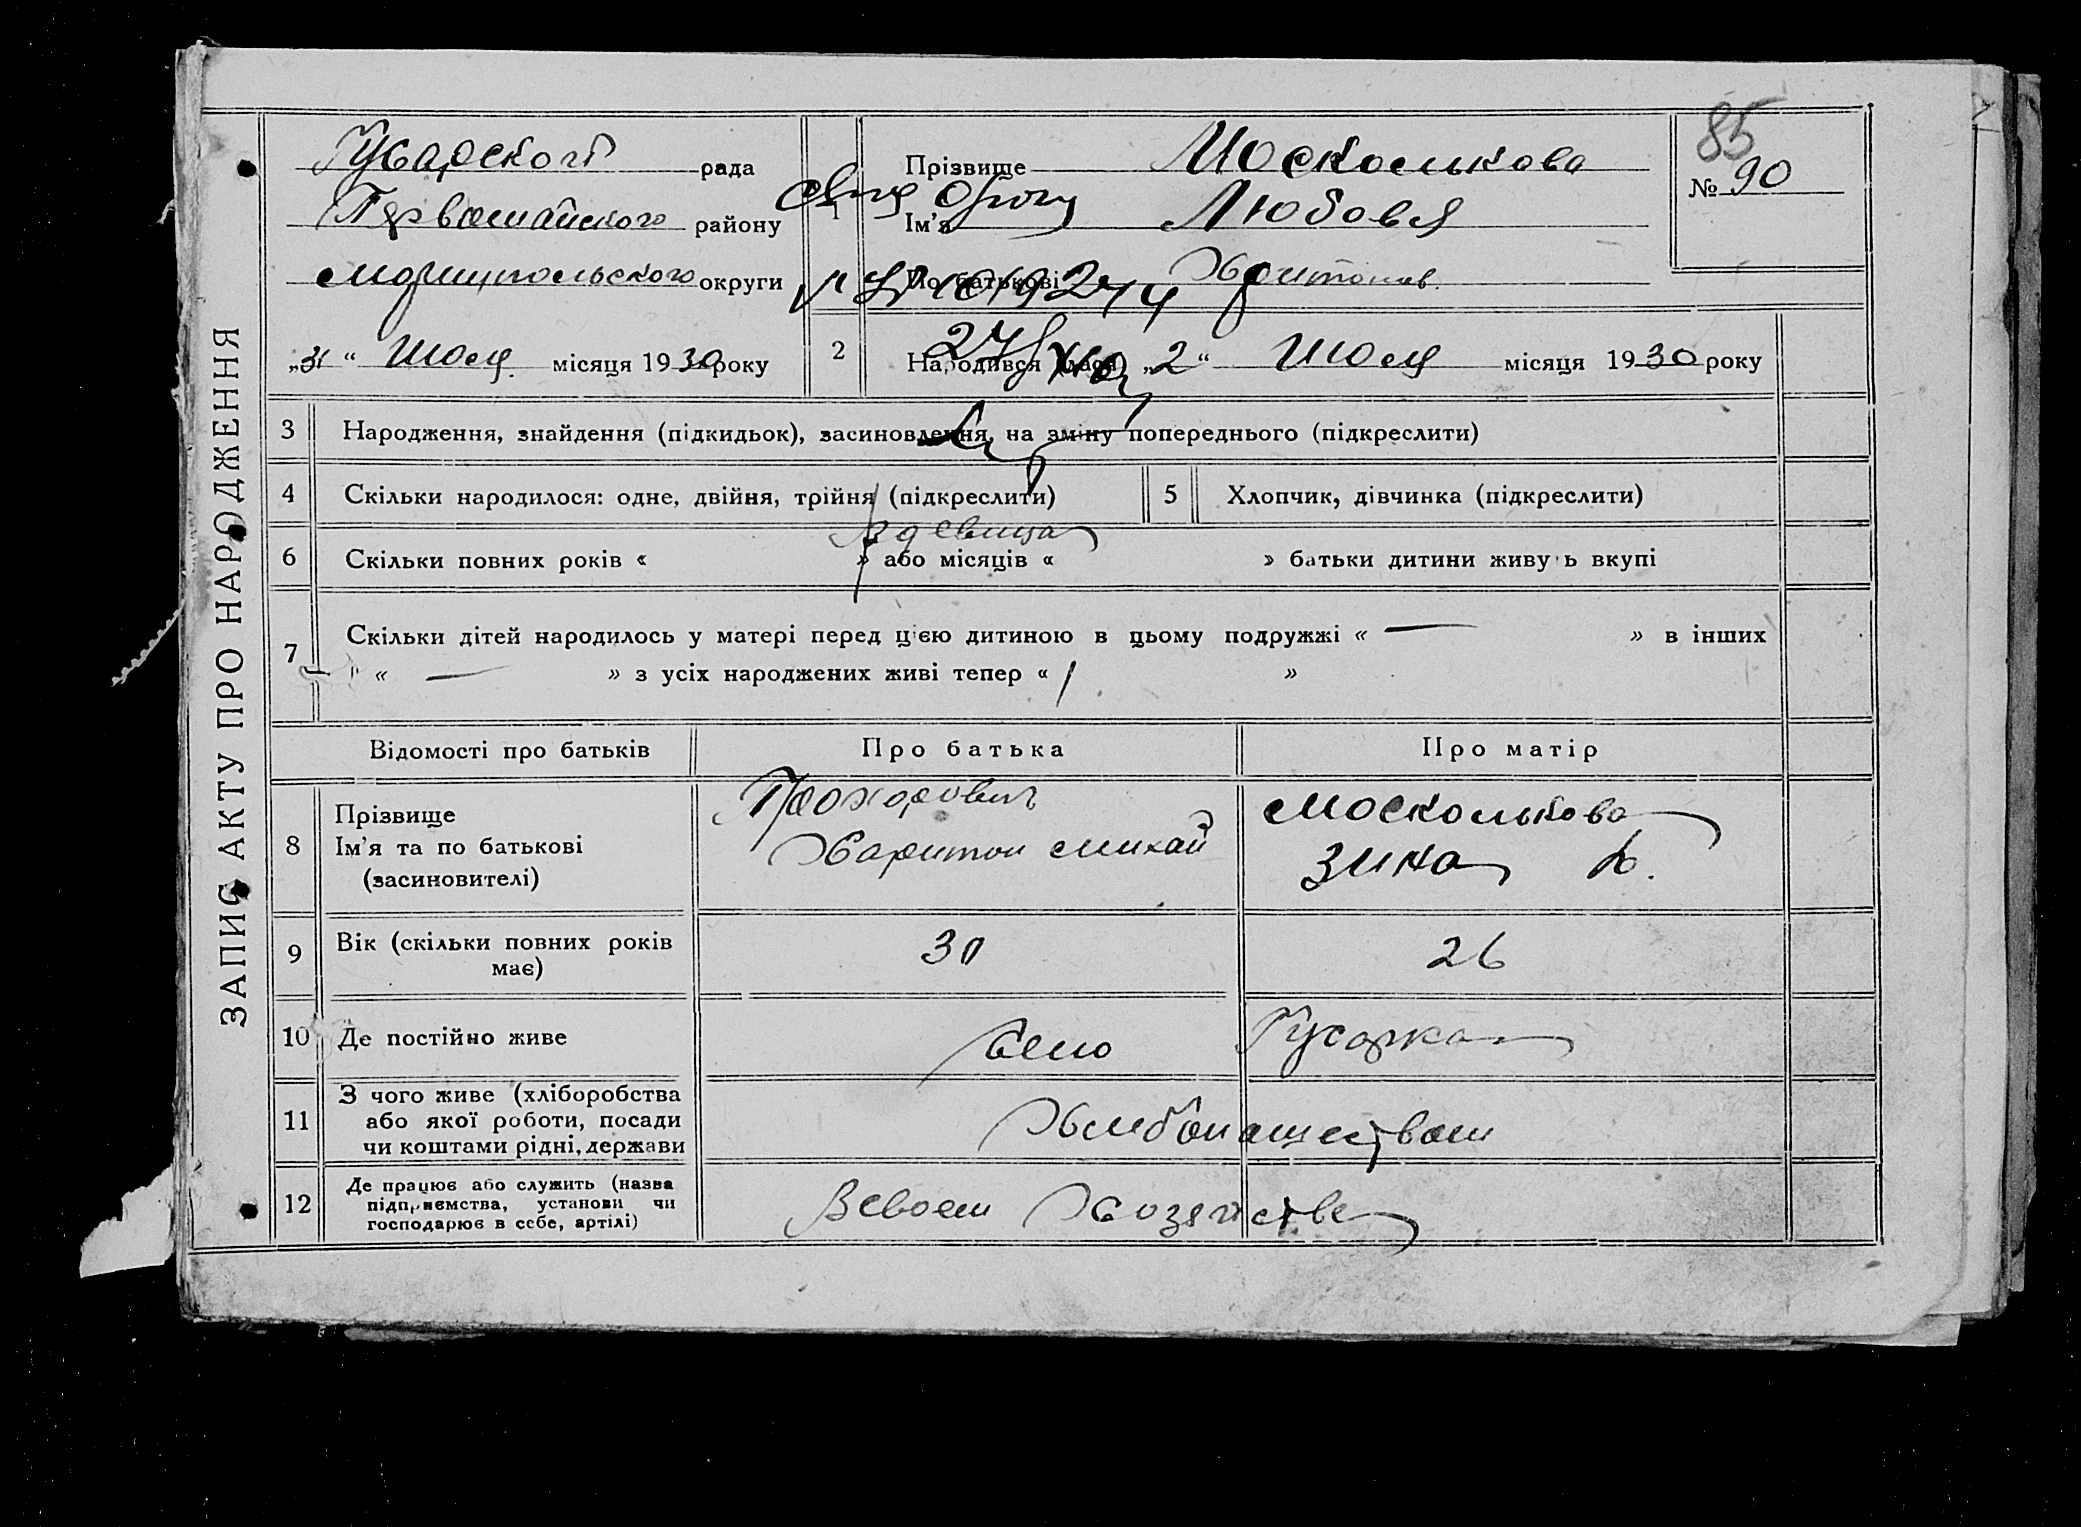 ЗАПИС АКТУ ПРО НАРОДЖЕННЯ
Гусарского рада
Первомайского району
Мариупольского округи
„31“ Июля місяця 1930 року
85
№ 90
1 Прізвище Москолькова
Ім'я Любовя
По батькові Харитонов.
2 Народився (лася) „2“ Июля місяця 1930 року
3 Народження, знайдення (підкидьок), засиновлення, на зміну попереднього (підкреслити)
4 Скільки народилося: одне, двійня, трійня (підкреслити)
5 Хлопчик, дівчинка (підкреслити)
6 Скільки повних років « » або місяців « » батьки дитини живуть вкупі
7 Скільки дітей народилось у матері перед цією дитиною в цьому подружжі « — » в інших
« — » з усіх народжених живі тепер « 1 »
Відомості про батьків Про батька Про матір
8 Прізвище
Ім'я та по батькові
(засиновителі)
Прохорович
Харитон Михай
Москолькова
Зина
9 Вік (скільки повних років має)
30
26
10 Де постійно живе
Село Гусарка
11 З чого живе (хліборобства
або якої роботи, посади
чи коштами рідні, держави
Хлибопашеством
12 Де працює або служить (назва
підприємства, установи чи
господарює в себе, артілі)
Всвоем Хозяйстве